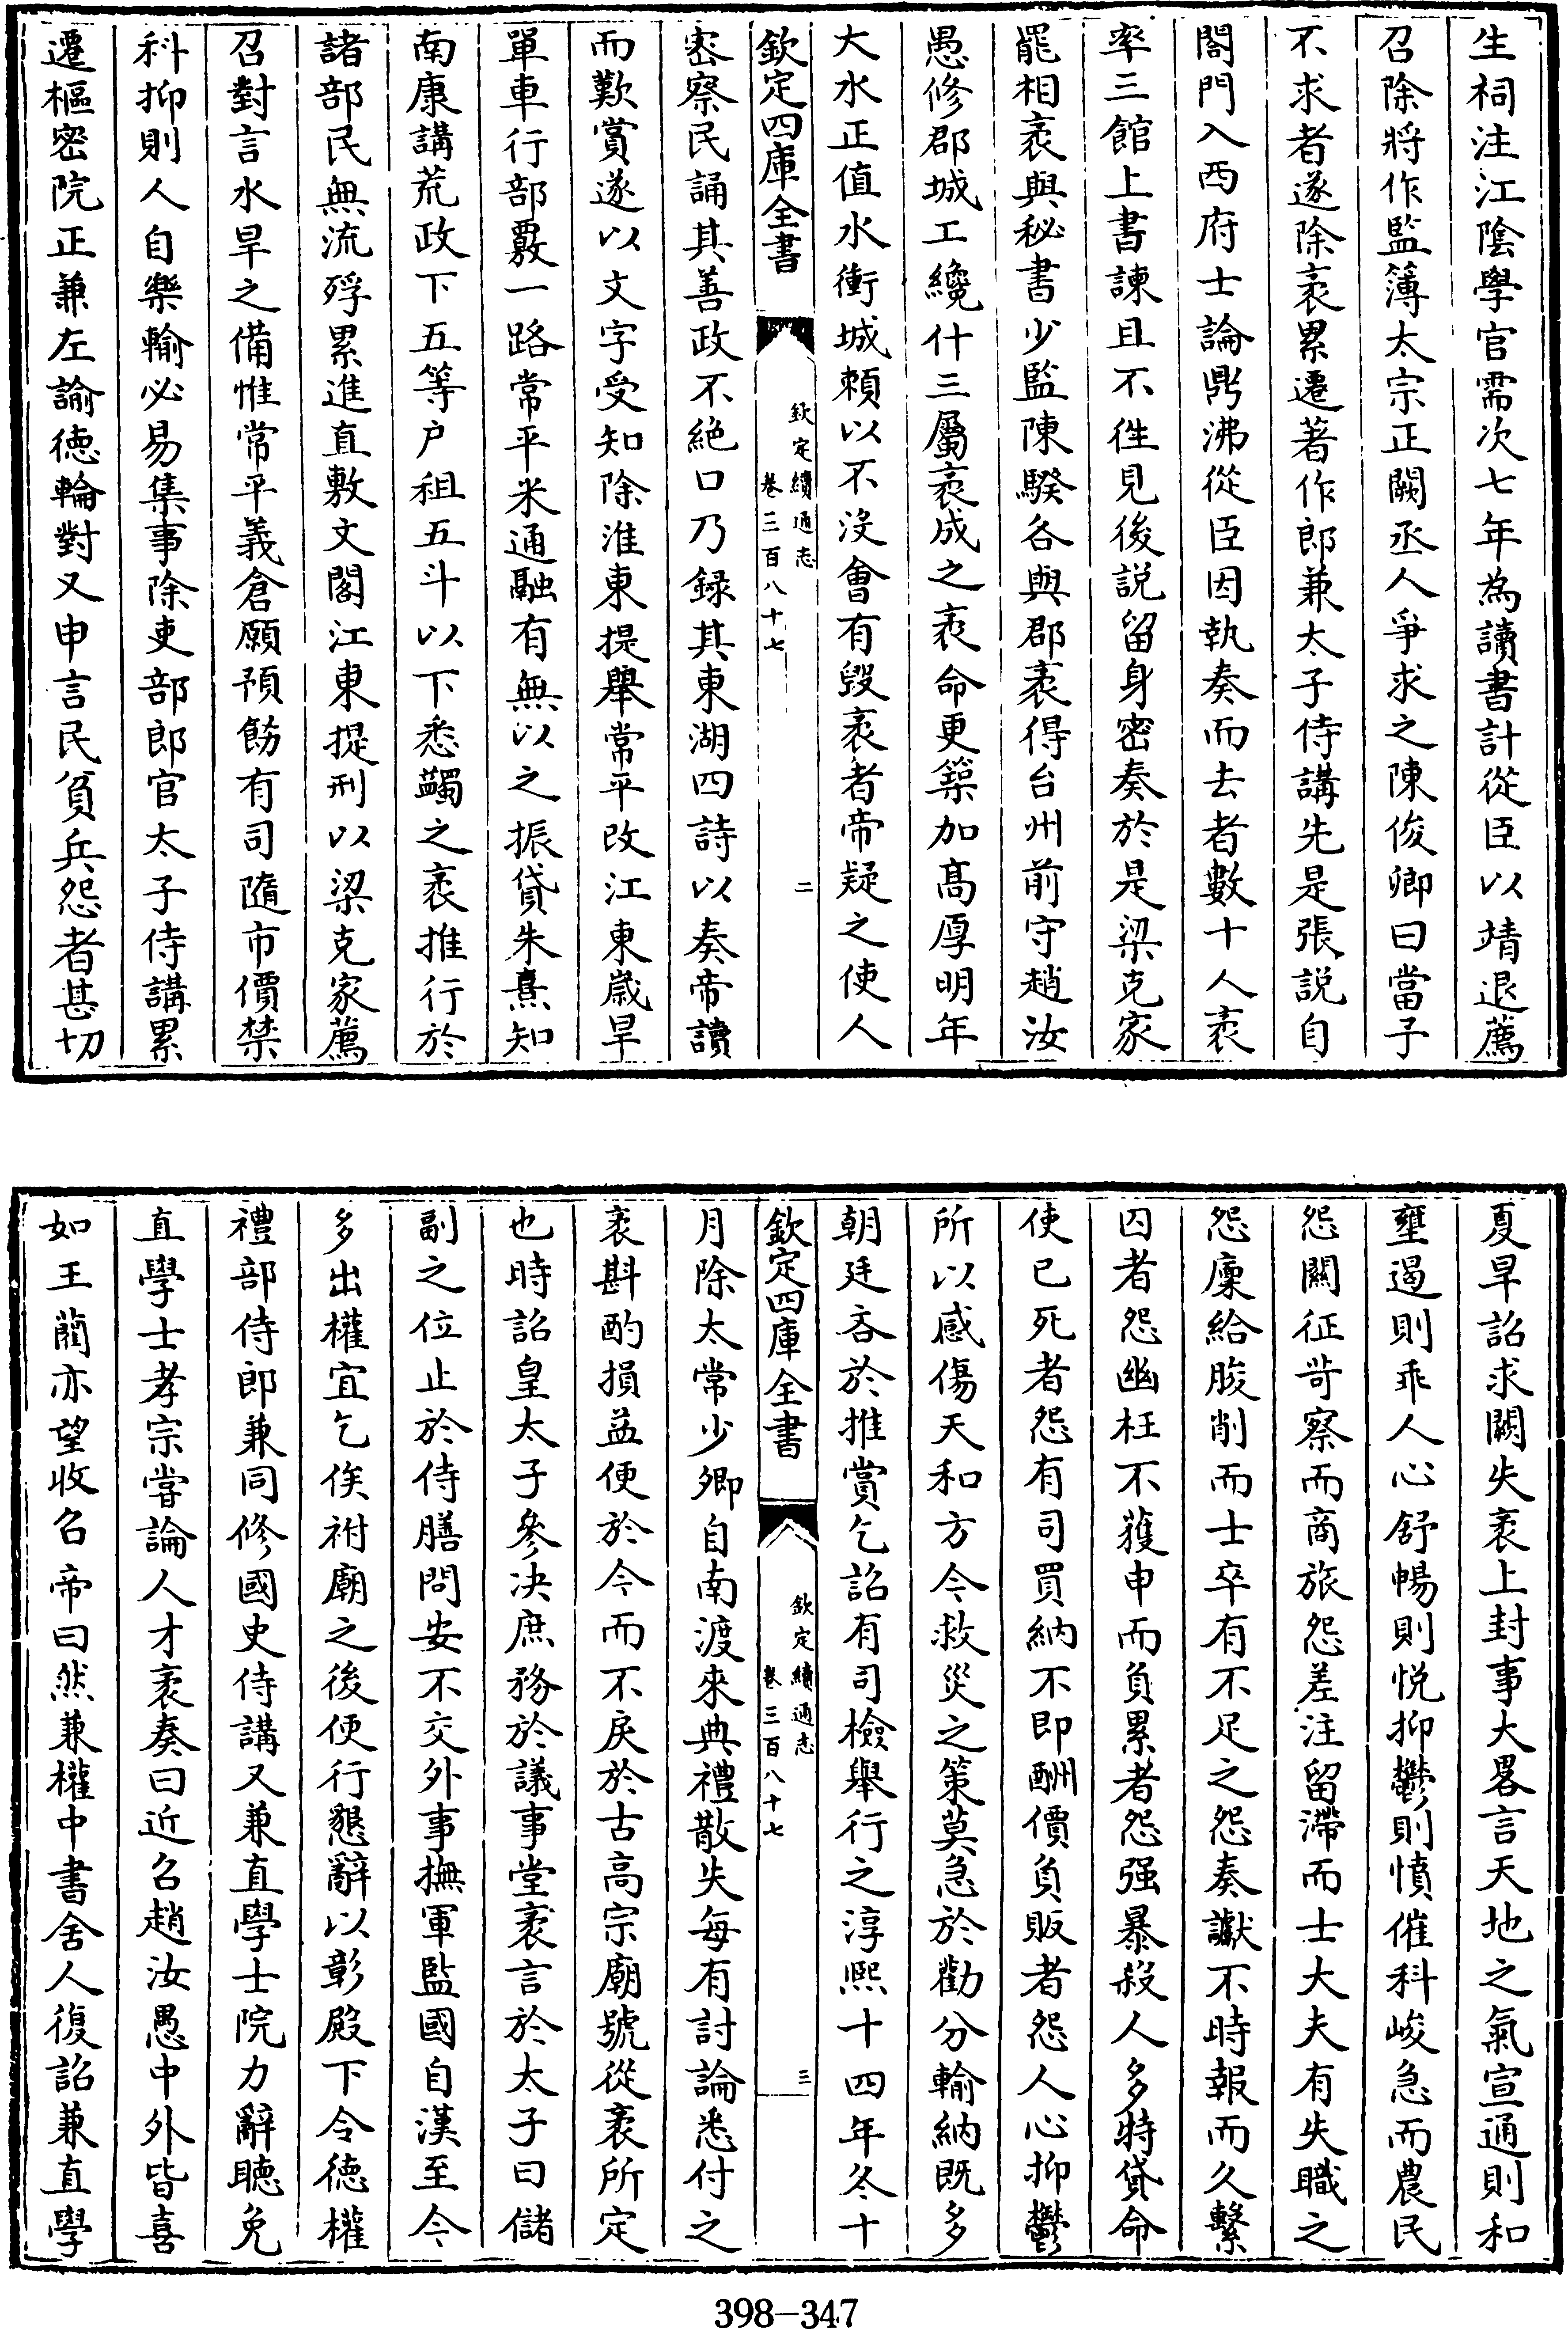 生祠注江陰學官需次七年為讀書計從臣以靖退薦
召除將作監簿太宗正闕丞人爭求之陳俊卿曰當子
不求者遂除袤累遷著作郎兼太子侍講先是張説自
閤門入西府士論鼎沸從臣因執奏而去者數十人袤
率三館上書諫且不徃見後説留身密奏於是梁克家
罷相袤與秘書少監陳騤各與郡袤得台州前守趙汝
愚修郡城工纔什三屬袤成之袤命更築加髙厚明年
大水正值水衝城頼以不没會有毀袤者帝疑之使人
欽定四庫全書
欽定續通志
卷三百八十七
二
密察民誦其善政不絶口乃録其東湖四詩以奏帝讀
而歎賞遂以文字受知除淮東提舉常平改江東嵗旱
單車行部覈一路常平米通融有無以之振貸朱熹知
南康講荒政下五等户租五斗以下悉蠲之袤推行於
諸部民無流殍累進直敷文閣江東提刑以梁克家薦
召對言水旱之備惟常平義倉願預飭有司隨市價禁
科抑則人自樂輸必易集事除吏部郎官太子侍講累
遷樞密院正兼左諭徳輪對又申言民貧兵怨者甚切
夏旱詔求闕失袤上封事大畧言天地之氣宣通則和
壅遏則乖人心舒暢則悦抑鬱則憤催科峻急而農民
怨關征苛察而商旅怨差注留滯而士大夫有失職之
怨廩給朘削而士卒有不足之怨奏讞不時報而久繫
囚者怨幽枉不獲申而負累者怨强暴殺人多特貸命
使已死者怨有司買納不即酬價負販者怨人心抑鬱
所以感傷天和方今救災之策莫急於勸分輸納既多
朝廷吝於推賞乞詔有司檢舉行之淳熙十四年冬十
欽定四庫全書
欽定續通志
卷三百八十七
三
月除太常少卿自南渡來典禮散失每有討論悉付之
袤斟酌損益便於今而不戾於古高宗廟號從袤所定
也時詔皇太子參决庶務於議事堂袤言於太子曰儲
副之位止於侍膳問安不交外事撫軍監國自漢至今
多出權宜乞俟祔廟之後便行懇辭以彰殿下令德權
禮部侍郎兼同修國史侍講又兼直學士院力辭聽免
直學士孝宗嘗論人才袤奏曰近召趙汝愚中外皆喜
如王藺亦望收召帝曰然兼權中書舍人復詔兼直學
398-347